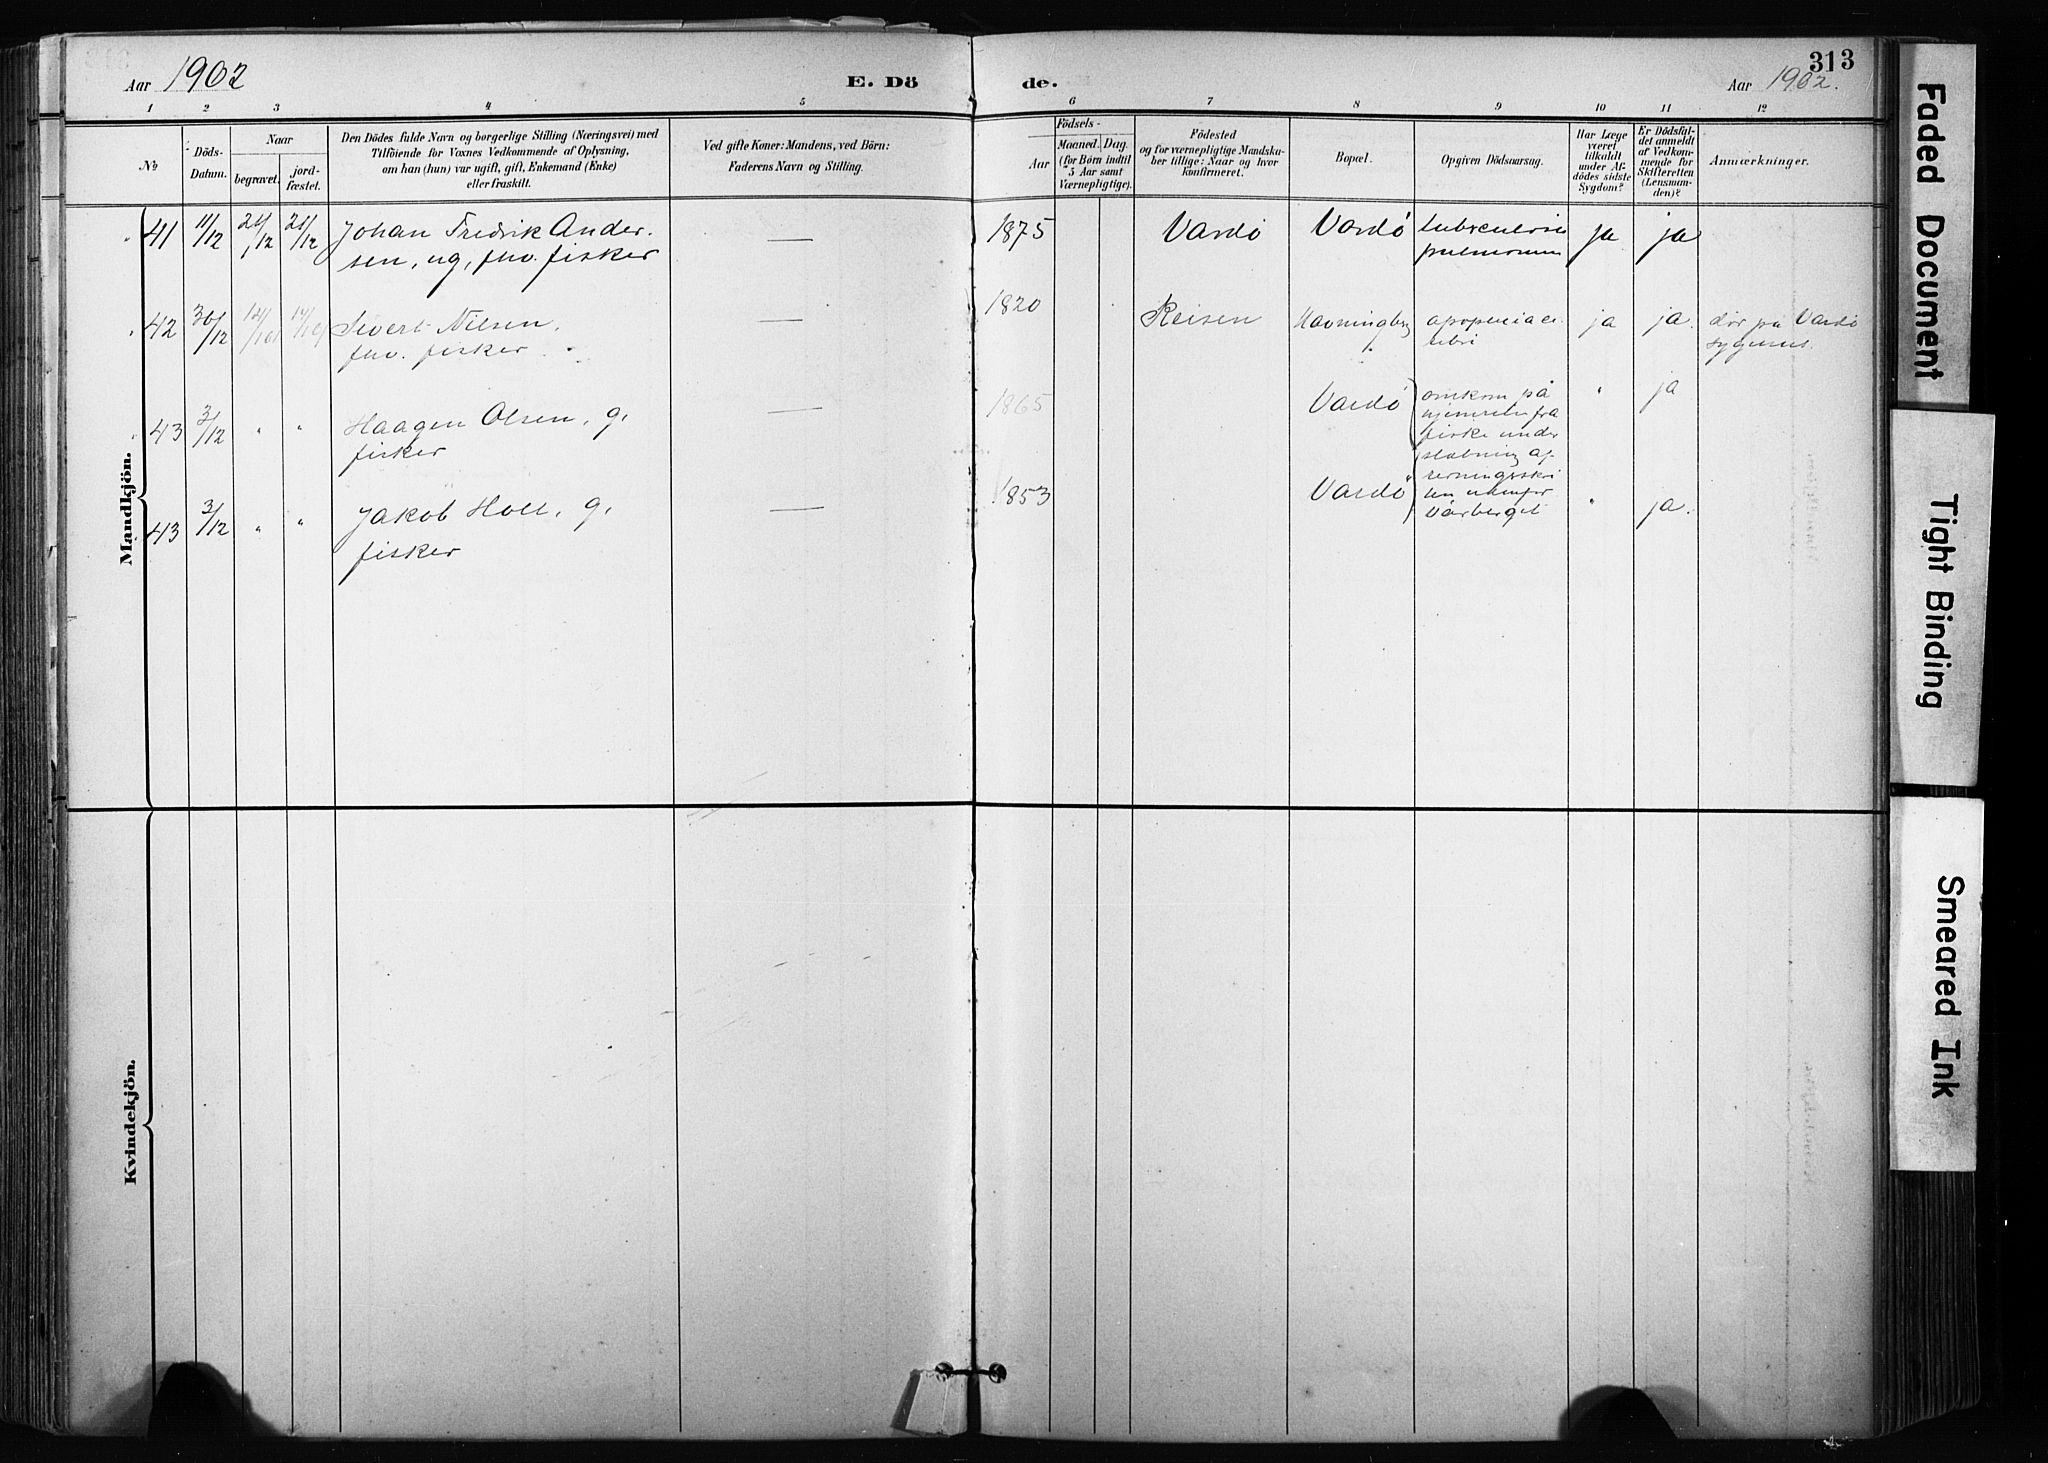 Aar 1902
E. Dö
de.
313
Aar 1902.
1 2 3 4 5 6 7 8 9 10 11 12
No
Döds-
Datum.
Naar
begravet.
jord-
fæstet.
Den Dödes fulde Navn og borgerlige Stilling (Næringsvei) med
Tilföiende for Voxnes Vedkommende af Oplysning,
om han (hun) var ugift, gift, Enkemand (Enke)
eller fraskilt.
Ved gifte Koner: Mandens, ved Börn:
Faderens Navn og Stilling.
Födsels-
Aar
Maaned.
Dag.
(for Börn indtil
5 Aar samt
Værnepligtige).
Födested
og for værnepligtige Mandska-
ber tillige: Naar og hvor
konfirmeret.
Bopæl.
Opgiven Dödsaarsag.
Har Læge
været
tilkaldt
under Af-
dödes sidste
Sygdom?
Er Dödsfal-
det anmeldt
af Vedkom-
mende for
Skifteretten
(Lensman-
den)?
Anmærkninger.
Mandkjön.
41 11/12 21/12 21/12 Johan Fredrik Ander-
sen, ug, fhv. fisker
— 1875 Vardö Vardö tuberculosis
pulmonum
ja ja
42 30/12 Sivert Nilsen,
fhv. fisker
— 1820 Reisen Havningberg
ja ja. dör på Vardö
43 3/12 " " Haagen Olsen, g,
fisker
— 1865 Vardö omkom på
hjemveien fra
fiske under
slæbning af
" ja
43 3/12 " " Jakob Holl, g,
fisker
— 1853 Vardö redningssköi
ten udenfor
Vårberget
" ja.
Kvindekjön.
Faded Document
Tight Binding
Smeared Ink